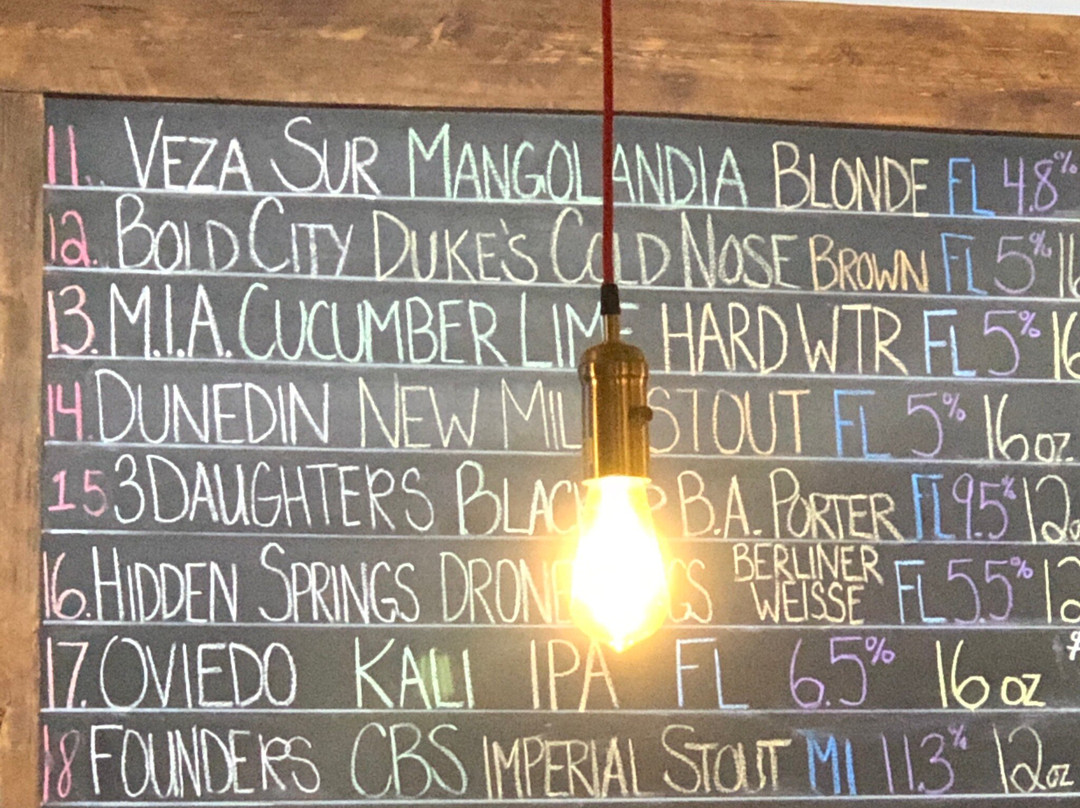 11. VEZA SUR MANGOLANDIA BLONDE FL 4.8%
12. BOLD CITY DUKE'S COLD NOSE BROWN FL 5% 16
13. M.I.A. CUCUMBER LIME HARD WTR FL 5% 16
14. DUNEDIN NEW STOUT FL 5% 16 oz.
15 3 DAUGHTERS B.A. PORTER FL 9.5% 12
16. HIDDEN SPRINGS BERLINER WEISSE FL 5.5% 12
17. OVIEDO KALI IPA FL 6.5% 16 oz
18 FOUNDERS CBS IMPERIAL STOUT MI 11.3% 12 oz